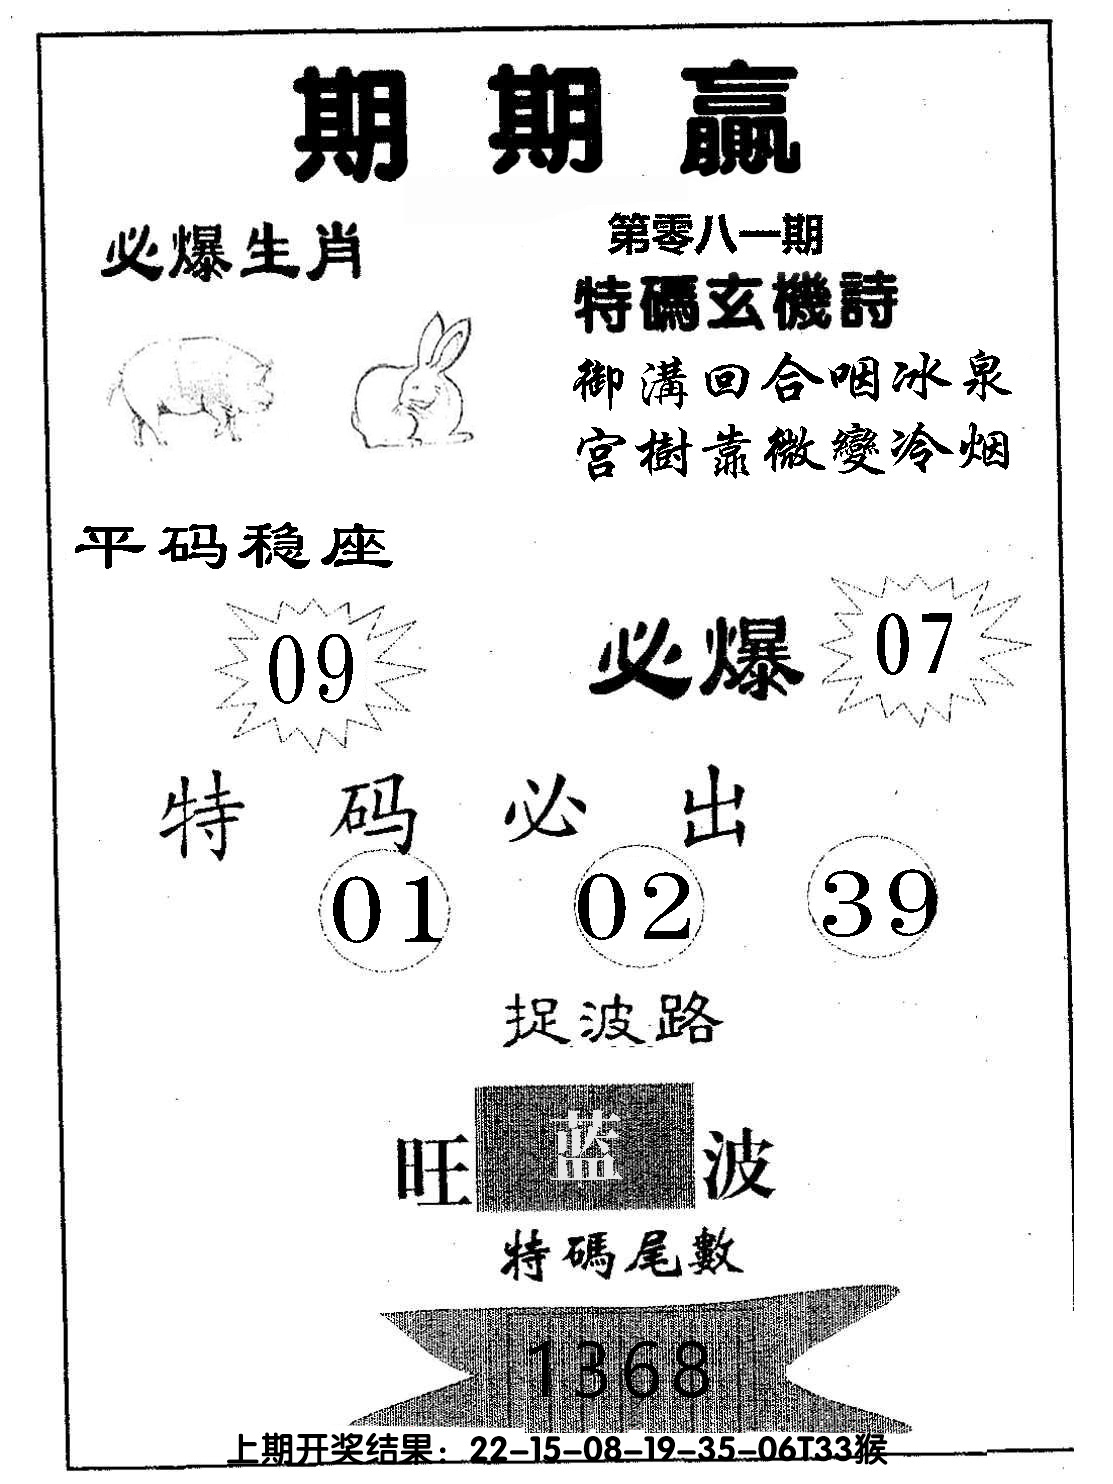 期期赢
必爆生肖
第零八一期
特碼玄機詩
御溝回合咽冰泉
宫樹靠微變冷烟
平码稳座
09
必爆 07
特码必出
01 02 39
捉波路
旺 蓝 波
特碼尾數
1368
上期开奖结果：22-15-08-19-35-06T33猴